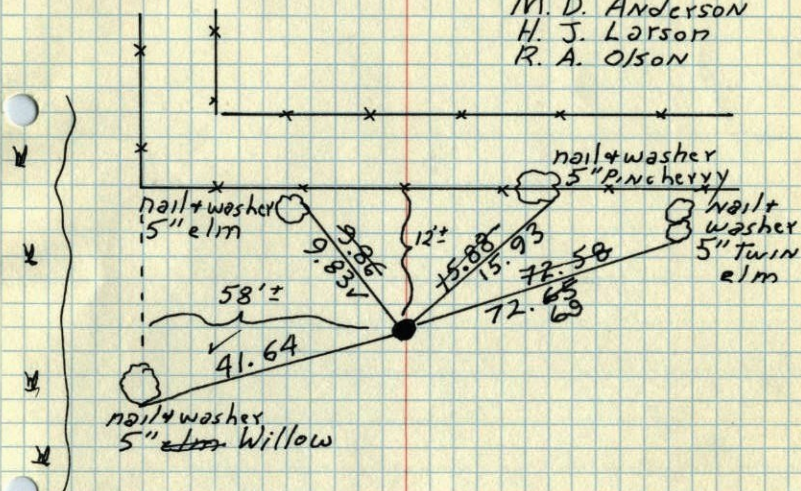 M. D. Anderson
H. J. Larson
R. A. Olson
nail & washer
5" Pincherry
nail & washer
5" elm
Nail &
washer
5" Twin
elm
9.86
9.83 ✓
12'±
15.88
15.93
72.58
72.65
69
58'±
✓
41.64
nail & washer
5" elm Willow